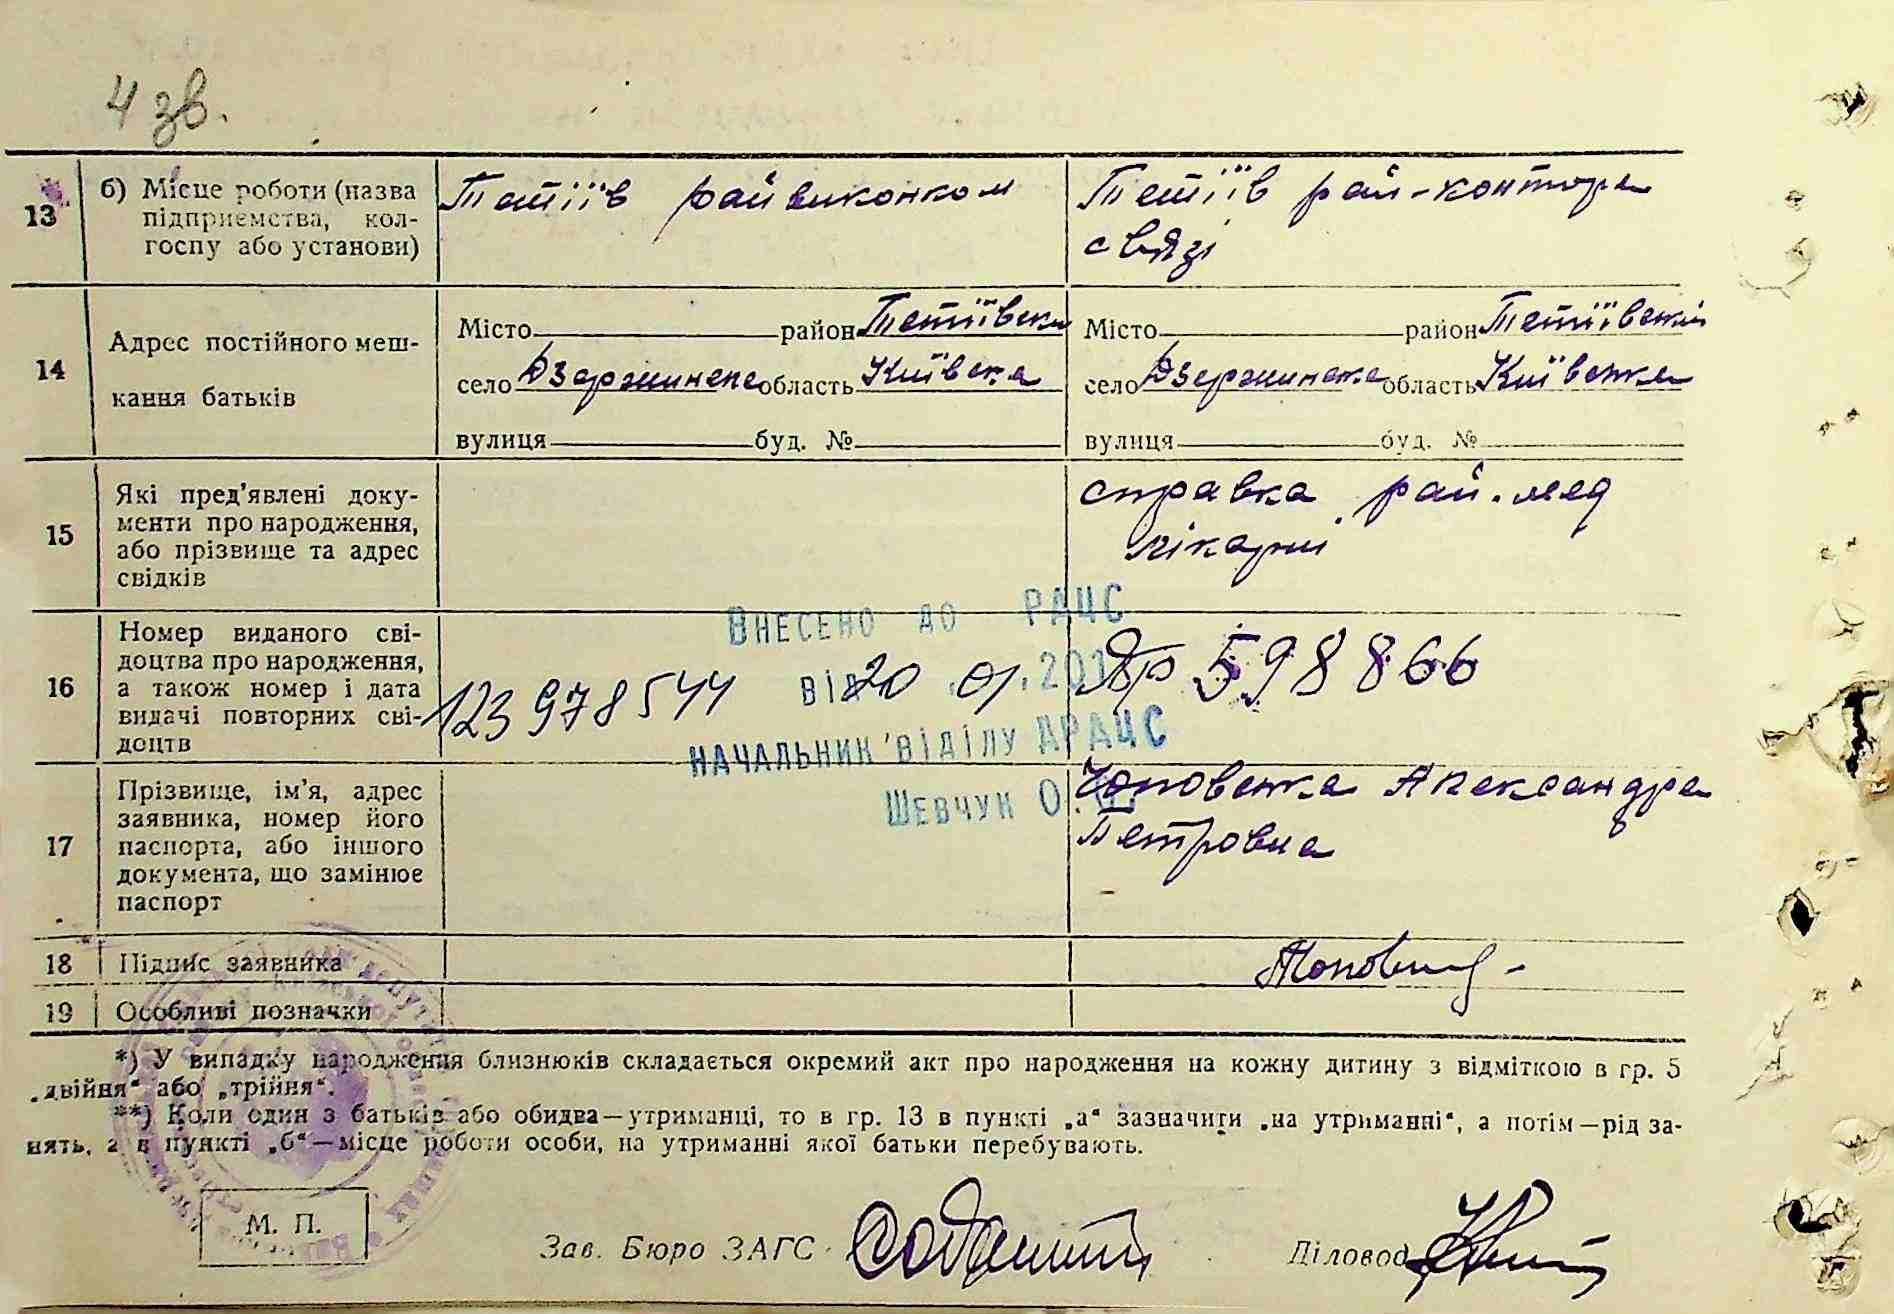 4 зв.
13 б) Місце роботи (назва підприємства, колгоспу або установи)
Тетіїв райвиконком
Тетіїв рай-контора
связі
14 Адрес постійного мешкання батьків
Місто район Тетіївськ
село Дзержинське область Київська
вулиця буд. №
Місто район Тетіївський
село Дзержинське область Київська
вулиця буд. №
15 Які пред'явлені документи про народження, або прізвище та адрес свідків
справка рай. мед
лікарні
16 Номер виданого свідоцтва про народження, а також номер і дата видачі повторних свідоцтв
123978544
598866
Внесено до РАЦС
від 20 .01.201
начальник відділу ДРАЦС
Шевчук О.
17 Прізвище, ім'я, адрес заявника, номер його паспорта, або іншого документа, що замінює паспорт
Александра
Петровна
18 Підпис заявника
19 Особливі позначки
*) У випадку народження близнюків складається окремий акт про народження на кожну дитину з відміткою в гр. 5
„двійня“ або „трійня“.
**) Коли один з батьків або обидва—утриманці, то в гр. 13 в пункті „а“ зазначити „на утриманні“, а потім—рід за-
нять, а в пункті „б“—місце роботи особи, на утриманні якої батьки перебувають.
М. П.
Зав. Бюро ЗАГС
Діловод